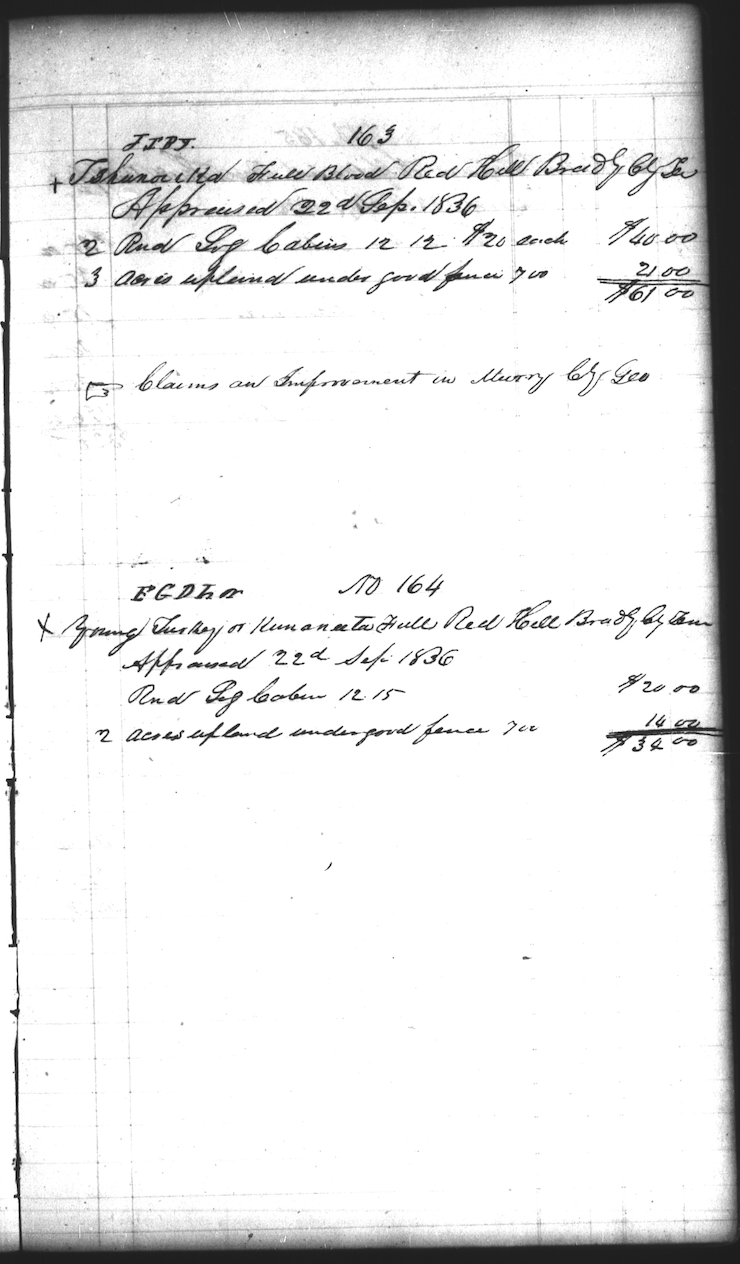 163
+ Full Blood Red Hill Bradly Cty Ten
Appraised 22d Sep. 1836
2 Rnd Log Cabins 12 12 $20 each $40 00
3 acres upland under good fence 7 00 21 00
$61 00
Claims an Improvement in Murry Cty Geo
No 164
X Young Turkey or Kunaneeta Full Red Hill Bradly Cty Tenn
Appraised 22d Sep 1836
Rnd Log Cabin 12 15 $20 00
2 acres upland under good fence 7 00 14 00
$34 00